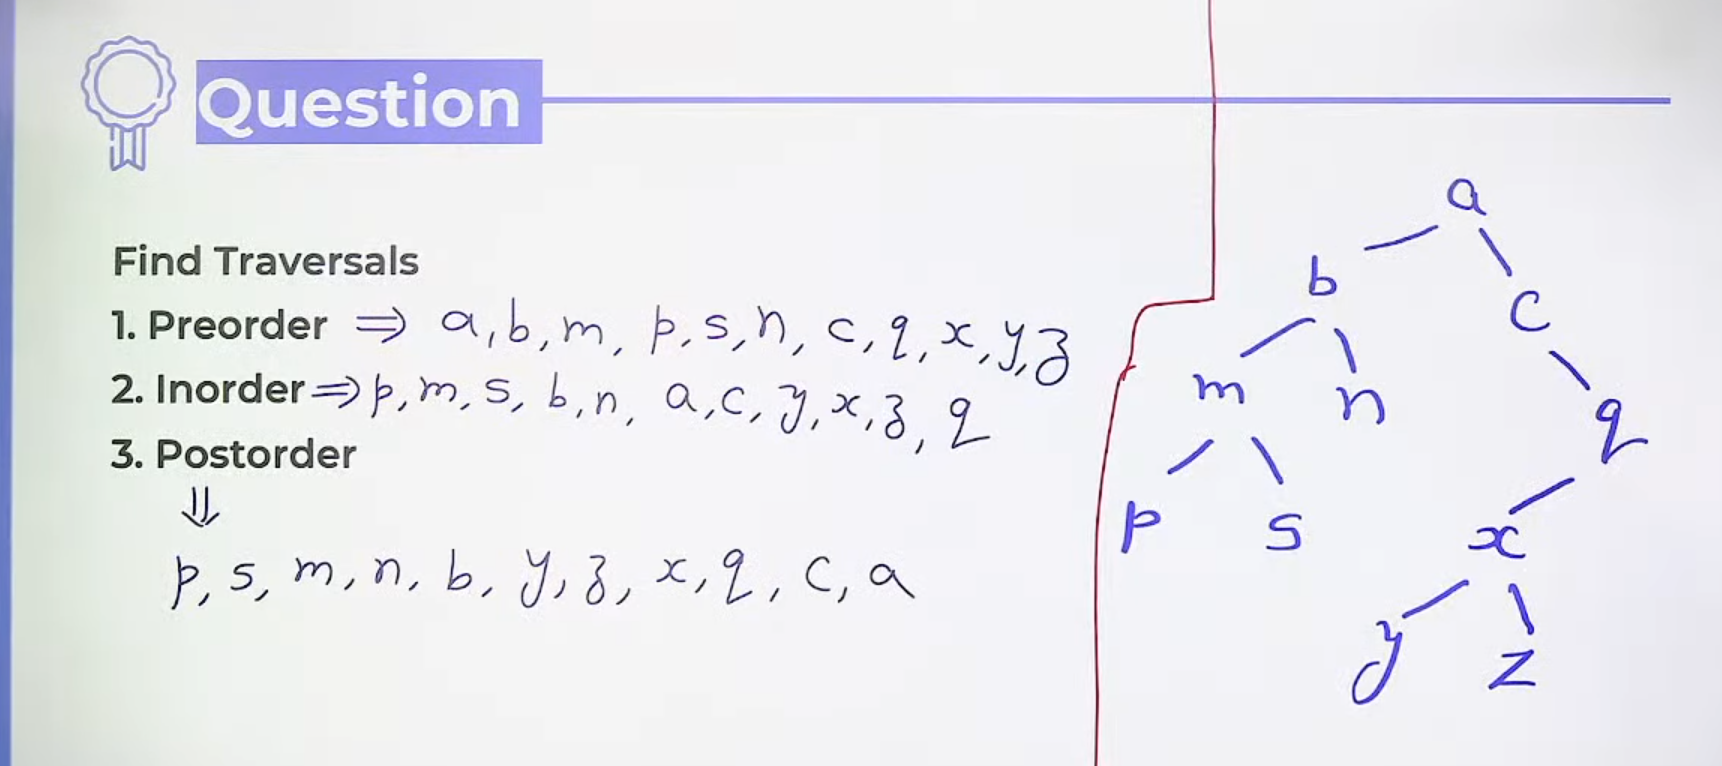 Question
Find Traversals
1. Preorder ⇒ a, b, m, p, s, n, c, q, x, y, z
2. Inorder ⇒ p, m, s, b, n, a, c, y, x, z, q
3. Postorder
⇓
p, s, m, n, b, y, z, x, q, c, a
a
b
c
m n
q
p s
x
y z